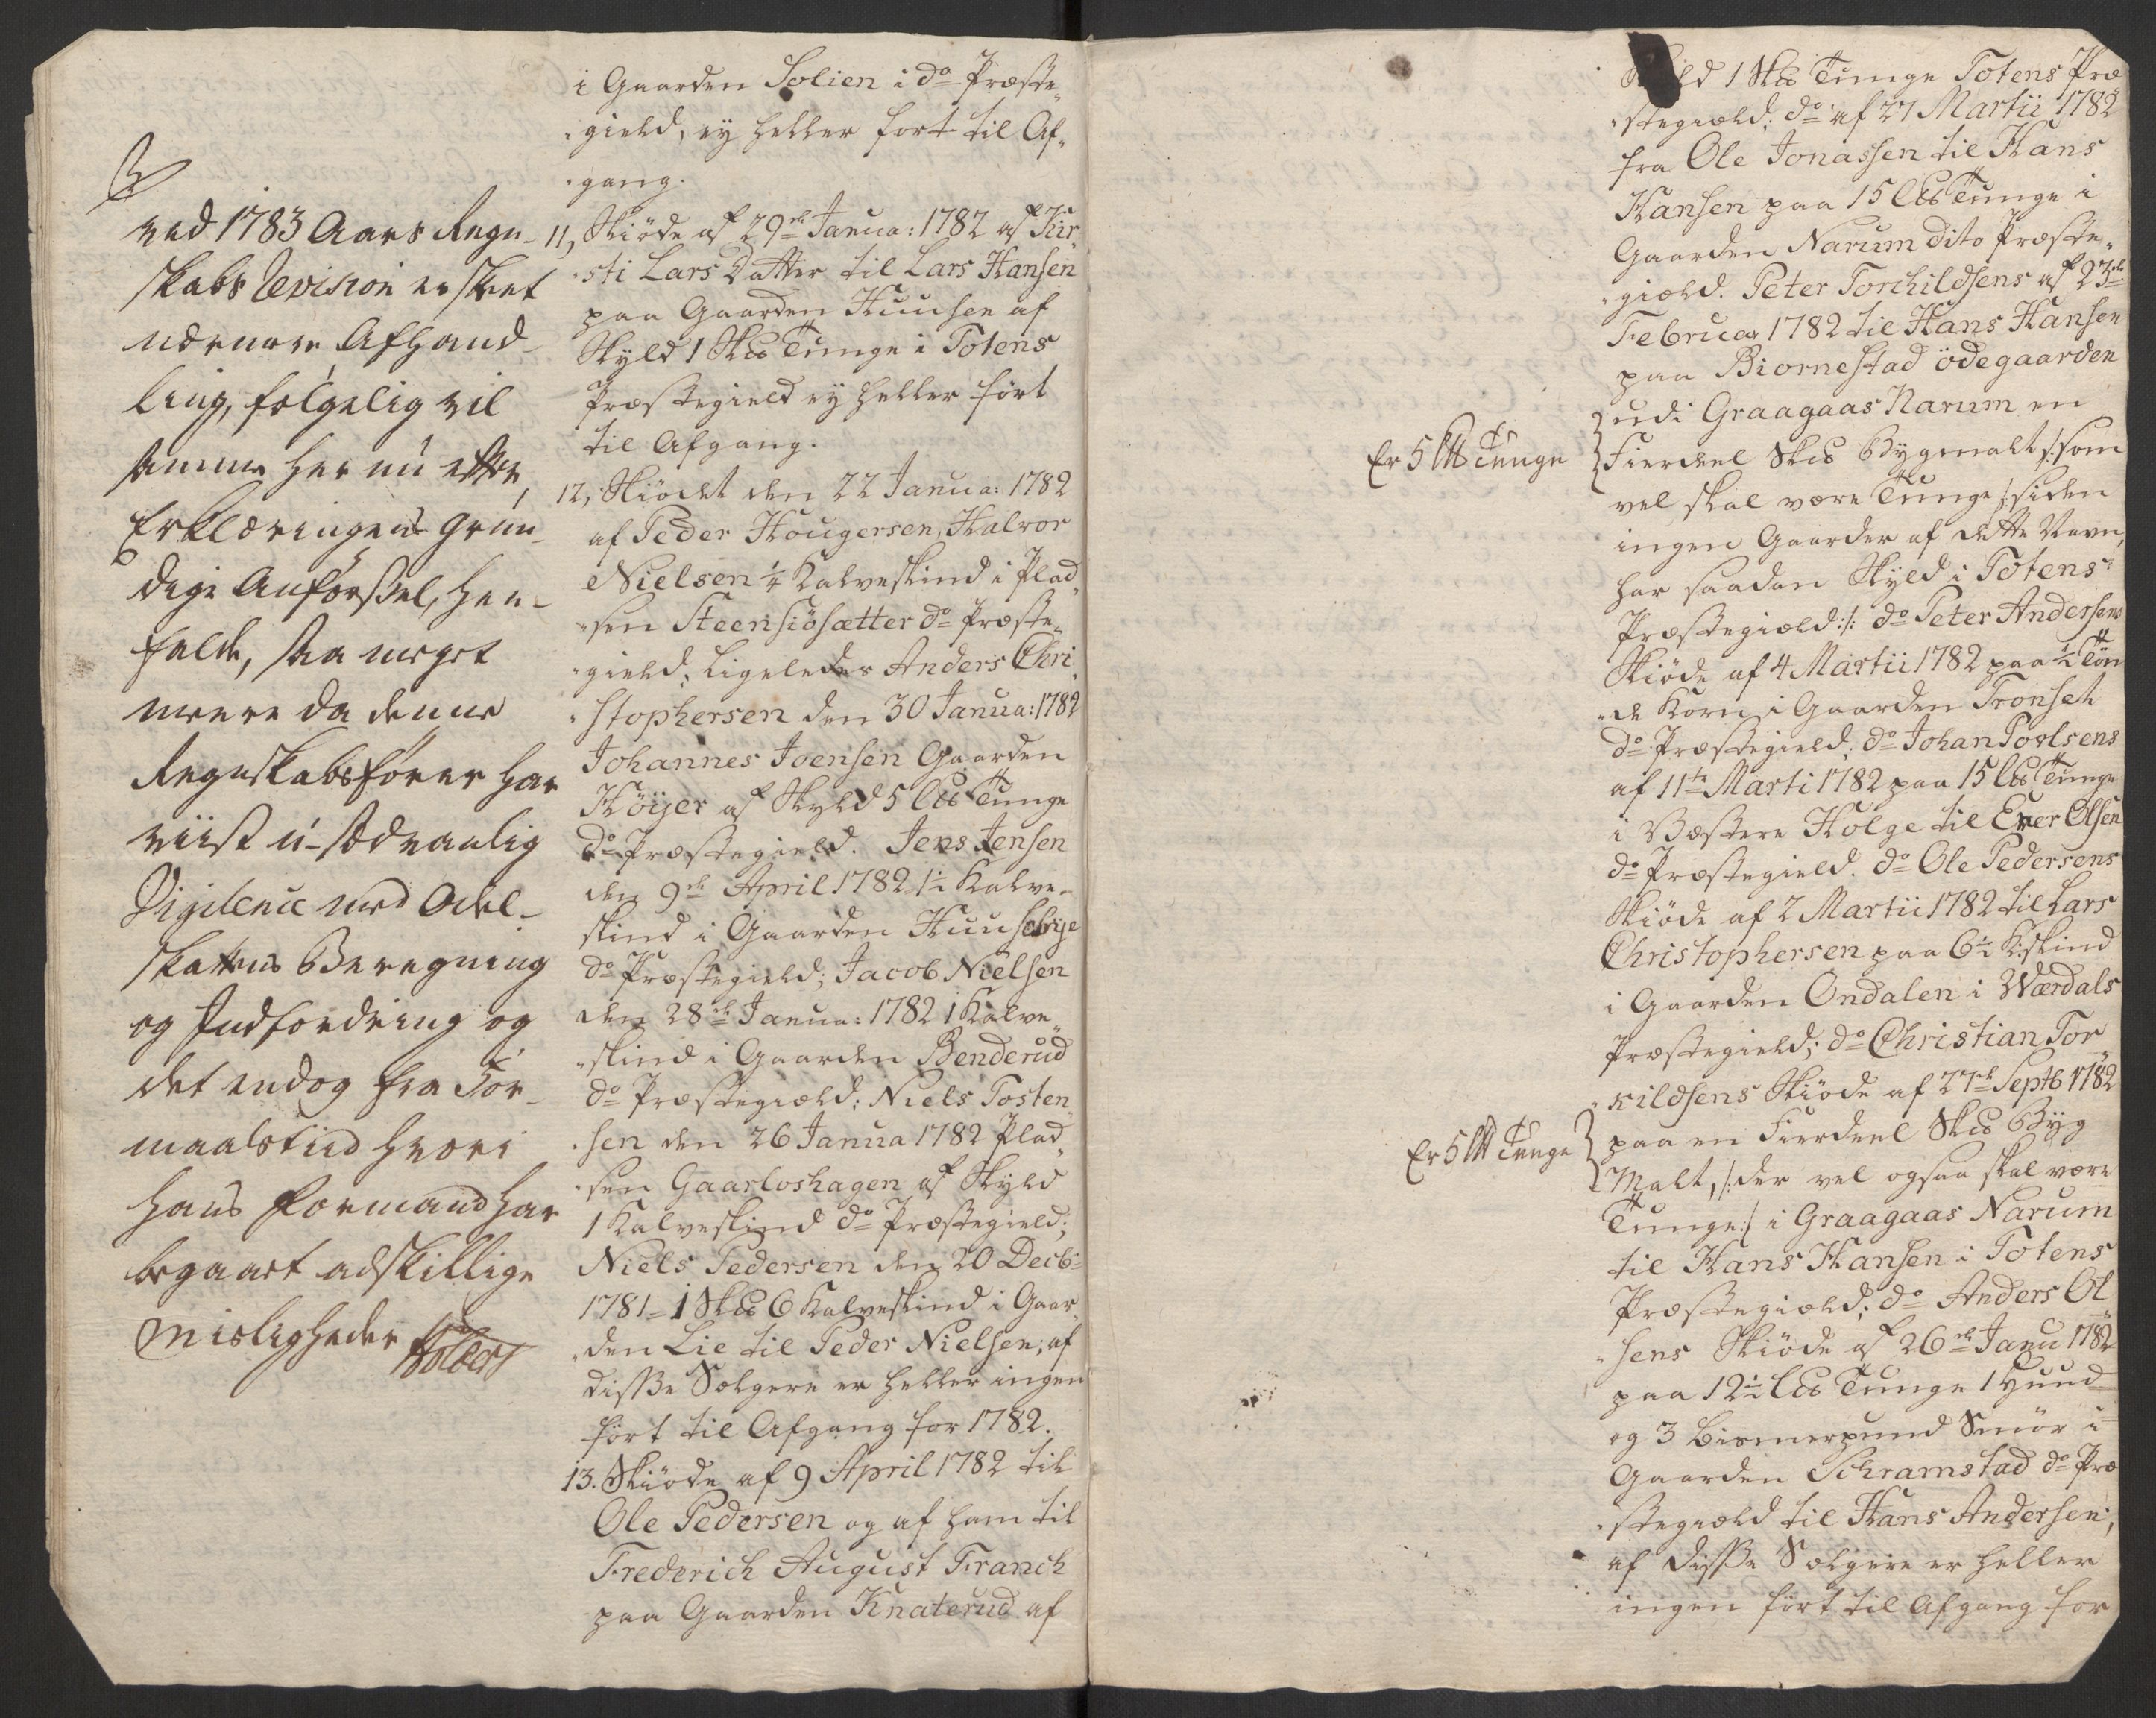 ved 1783 Aars Regn-
skabs Revision er skeet
nærmere Afhand-
ling, følgelig vil
samme her nu efter
Erklæringens grün-
dige Anførsel, hen-
falde, saa meget
meere da denne
Regnskabsfører har
viist u-sædvanlig
Vigilence med Odel-
skattens Beregning
og Indfordring og
det endog fra For-
maalstiid hvori
hans Formand har
begaaet adskillige
Misligheder
i Gaarden Solien i do Præste-
gield, ey heller ført til Af-
gang.
11, Skiøde af 29de Janua: 1782 af Kir-
sti Lars Datter til Lars Hansen
paa Gaarden Huusen af
Skyld 1 Skd Tunge i Totens
Præstegield ey heller ført
til Afgang.
12, Skiødet den 22 Janua: 1782
af Peder Hougersen, Halvor
Nielsen ¼ Kalveskind i Plad-
sen Steensiösætter do Præste-
gield; ligeledes Anders Chri-
stophersen den 30 Janua: 1782
Johannes Joensen Gaarden
Höijer af Skyld 5 Lld Tunge
do Præstegield. Jens Jensen
den 9de April 1782 1½ Kalve-
skind i Gaarden Huusebye
do Præstegield; Jacob Nielsen
den 28de Janua: 1782 1 Kalve-
skind i Gaarden Benderud
do Præstegiæld; Niels Tosten-
sen den 26 Janua 1782 Plad-
sen Gaarloshagen af Skyld
1 Kalveskind do Præstegield;
Niels Pedersen den 20 Decb:
1781 - 1 Skd 6 Kalveskind i Gaar-
den Lie til Peder Nielsen; af
disse Sælgere er heller ingen
ført til Afgang for 1782.
13. Skiøde af 9 April 1782 til
Ole Pedersen og af ham til
Frederich August Franch
paa Gaarden Knaterud af
Skyld 1 Skd Tunge Totens Præ-
stegiæld; do af 27 Martii 1782
fra Ole Jonassen til Hans
Hansen paa 15 Lld Tunge i
Gaarden Narum dito Præste-
giæld. Peter Torchildsens af 23de
Februar 1782 til Hans Hansen
paa Biørnestad ödegaarden
udi Graagaas Narum en
Er 5 Lld Tunge
Fierdeel Skd Bygmalt /: som
vel skal være Tunge :/ siden
ingen Gaarder af dette Navn,
har saadan Skyld i Totens
Præstegiæld :/: do Peter Andersens
Skiøde af 4 Martii 1782 paa ½ Tøn-
de Korn i Gaarden Fronset
do Præstegield; do Johan Povlsens
af 11te Marti 1782 paa 15 Lld Tunge
i Væstere Holge til Ever Olsen
do Præstegield. do Ole Pedersens
Skiøde af 2 Martii 1782 til Lars
Christophersen paa 6½ K:skind
i Gaarden Ondalen i Wærdals
Præstegield; do Christian Tor-
kildsens Skiøde af 27de Septb 1782
Er 5 Lld Tunge
paa en Fierdeel Skd Byg
Malt, /: der vel ogsaa skal være
Tunge :/ i Graagaas Narum
til Hans Hansen i Totens
Præstegiæld; do Anders Ol-
sens Skiøde af 26de Janu 1782
paa 12½ Lld Tunge 1 Huud
og 3 Bismerpund Smør i
Gaarden Schramstad do Præ-
stegiæld til Hans Andersen;
af disse Sælgere er heller
ingen ført til Afgang for